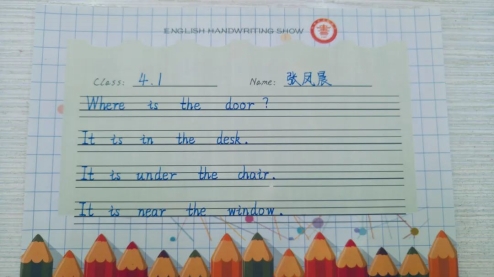 ENGLISH HANDWRITING SHOW
Class: 4.1 Name: 张凤晨
Where is the door?
It is in the desk.
It is under the chair.
It is near the window.